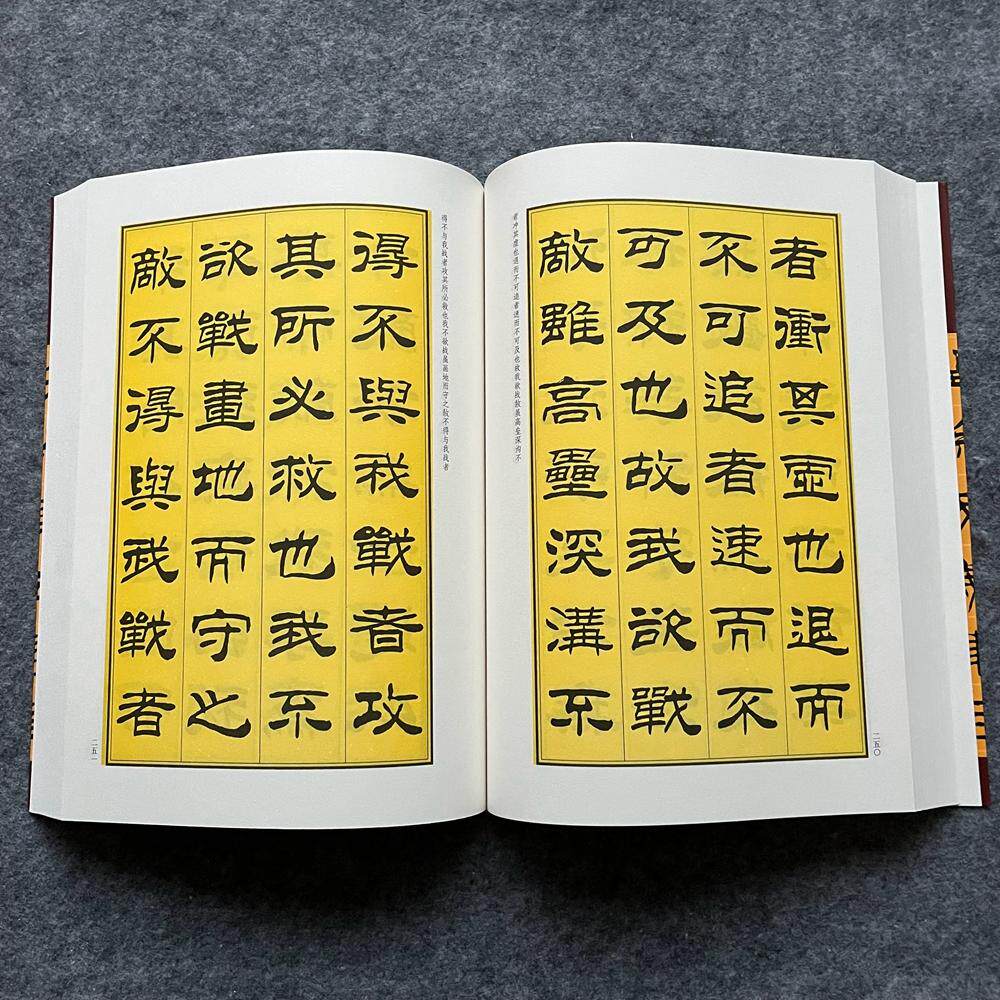 者衝其虛也退而
不可追者速而不
可及也故我欲戰
敵雖高壘深溝不
者冲其虚也退而不可追者速而不可及也故我欲战敌虽高垒深沟不
二五〇
得不與我戰者攻
其所必救也我不
欲戰畫地而守之
敵不得與我戰者
得不与我战者攻其所必救也我不欲战虽画地而守之敌不得与我战者
二五一